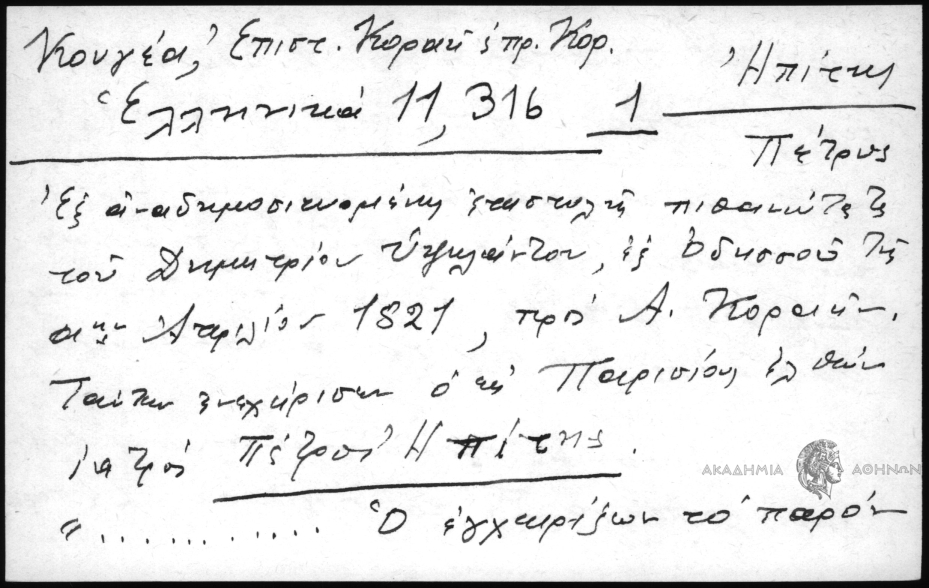 Κουγέα, Ἐπιστ. Κοραῆ ἐπρ. Κορ.
Ἑλληνικά 11, 316 1 Ἠπίτης
Πέτρος
Ἐξ ἀναδημοσιευομένης ἐπιστολῆς πιθανώτατα
τοῦ Δημητρίου Ὑψηλάντου, ἐξ Ὀδησσοῦ τῆς
Ἀπριλίου 1821, πρός Α. Κοραῆν.
Ταύτην ἐνεχείρισεν ὁ εἰς Παρισίους ἐλθών
ἰατρός Πέτρος Ἠπίτης.
ΑΚΑΔΗΜΙΑ ΑΘΗΝΩΝ
"............ Ὁ ἐγχειρίζων τό παρόν